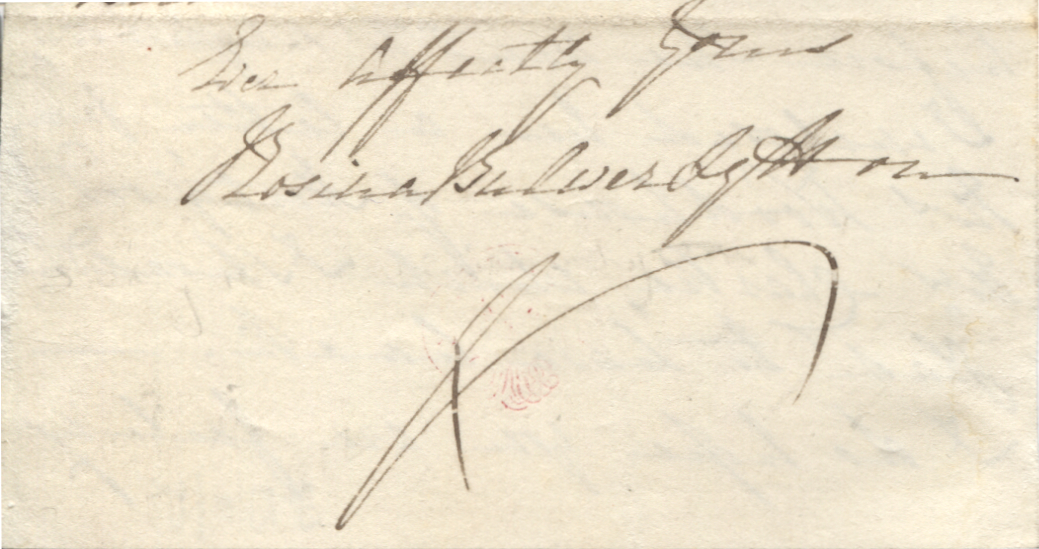 Ever Affectly yours
Rosina Bulwer Lytton